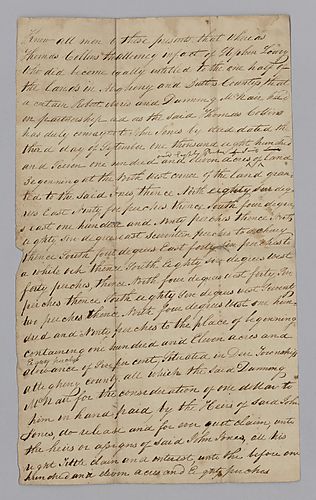 Know all men by these presents that whereas
Thomas Collins the attorney in fact of Stephen Lowry
who did become legally entitled to the one half of
the Lands in Allegheny and Butler Countys, that
a certain Robert and Dunning McNair held
in partnership and as the said Thomas Collins
has duly conveyed to the Jones by deed dated the
third day of September one thousand eight hundred
and Seven one hundred and Eleven acres of Land
and Eighty Perches
Beginning at the North west corner of the Land gran
ted to the said Jones, thence North eighty Six deg
rees East Ninty four perches thence South four degree
s east one hundred and Ninty perches thence North
eighty Six degrees east Seventeen perches to a
thence South four degrees East forty Six perches to
a white oak thence South Eighty Six degrees west
forty perches, thence North four degrees west forty Six
perches thence South eighty Six degrees west Seventy
two perches thence North four degrees West one hun
dred and Ninty perches to the place of beginning
containing one hundred and Eleven acres and
Eighty perches
allowance of Six per cent Situated in Deer Township
Allegheny county all which the Said Dunning
McNair for the consideration of one dollar to
him in hand paid by the Heirs of Said John
Jones, do release and for ever quit claim unto
the heirs or assigns of Said John Jones, all his
right Title claim and interest unto the before one
hundred and eleven acres and Eighty perches